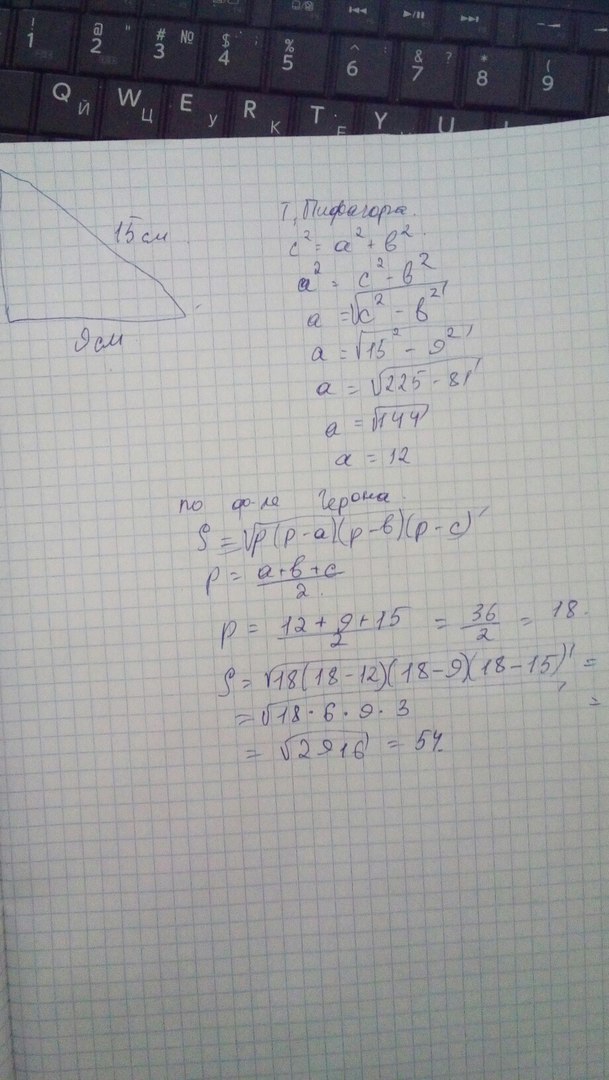 ! 1
@ 2 "
# 3 №
$ 4 ;
% 5
^ 6 :
& 7 ?
* 8
( 9
Q Й
W Ц
E У
R К
T Е
Y
U
15 см
9 см
Т. Пифагора.
c² = a² + b²
a² = c² - b²
a = √c² - b²
a = √15² - 9²
a = √225 - 81
a = √144
a = 12
по ф-ле Герона.
S = √p(p-a)(p-b)(p-c)
p = a+b+c/2
p = 12+9+15/2 = 36/2 = 18.
S = √18(18-12)(18-9)(18-15) =
= √18·6·9·3 =
= √2916 = 54.